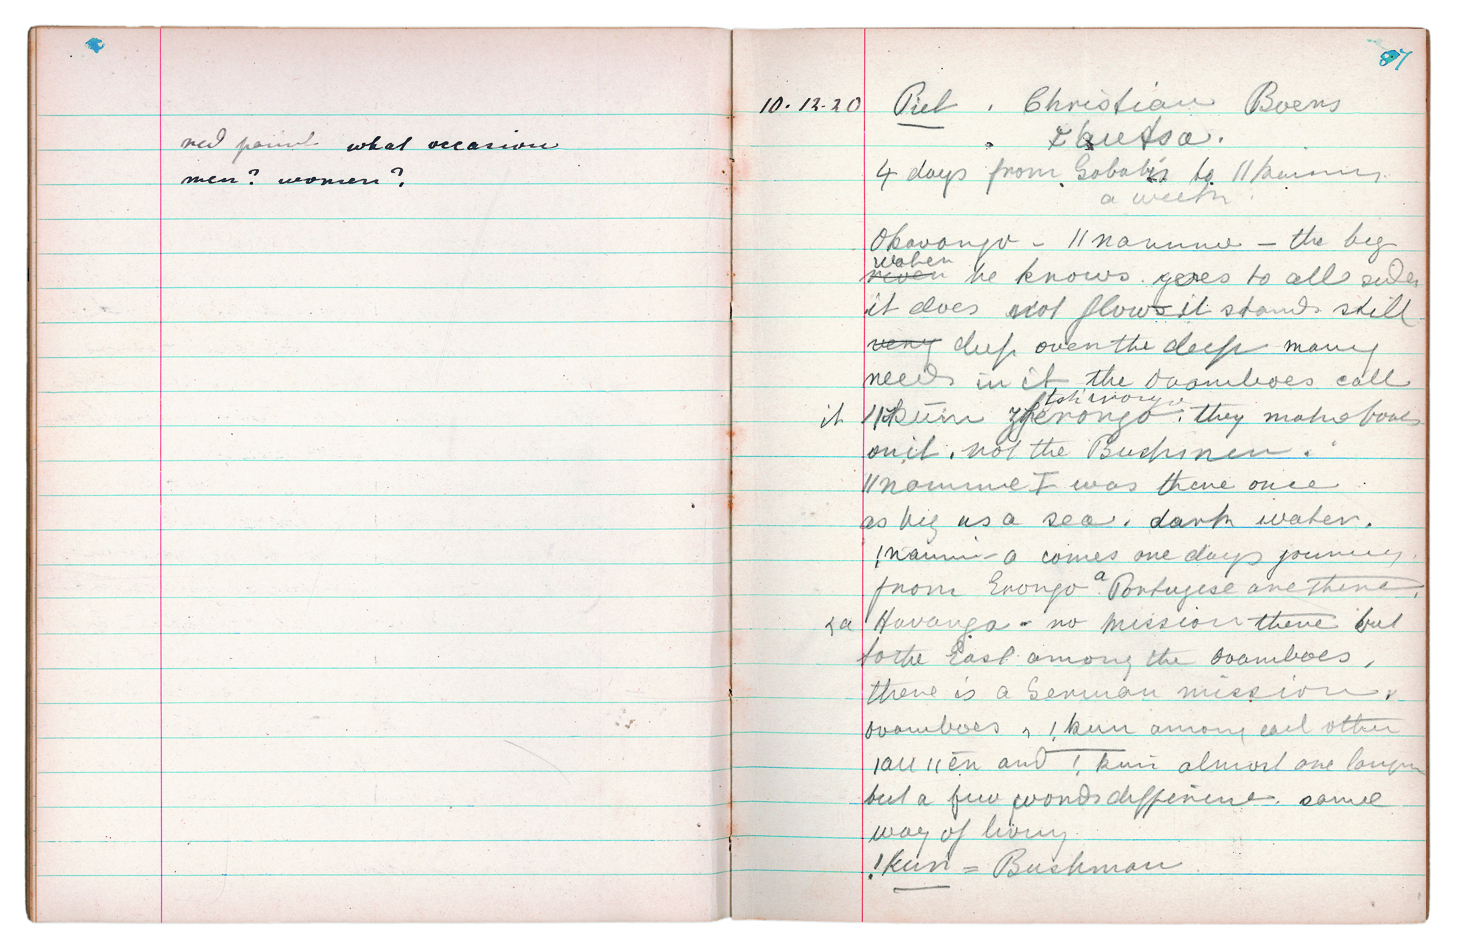 red paint what occasion
men? women?
87
10.12.20 Piet . Christian Boers
4 days from Gobabis to
a week.
Okavango - ǁnamme - the big
water
river he knows. goes to all sides
it does not flow it stands still
very deep over the deep many
reeds in it the Ovamboes call
it ǁkũm . they make boats
on it. not the Bushmen.
ǁnamme I was there once
as big as a sea. dark water.
comes one days journey
from Erongo a Portugese are there.
Havanga - no mission there but
to the East among the Ovamboes,
there is a German mission.
Ovamboes , !kun among each other
ǀauǁẽn and !kun almost one
but a few words different. same
way of living
!kun = Bushman